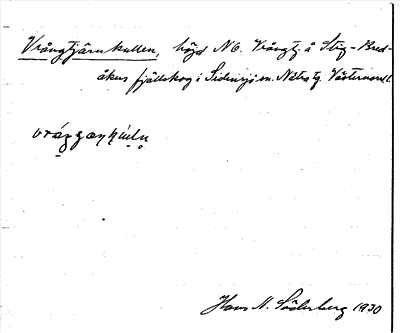 Vrångtjärnkullen, höjd NO. Vrångtj. å Stig-Bred-
åkers fjällskog i Sidensjö sn. Nätra tg. Västernorrl.
Hans N. Söderberg 1930